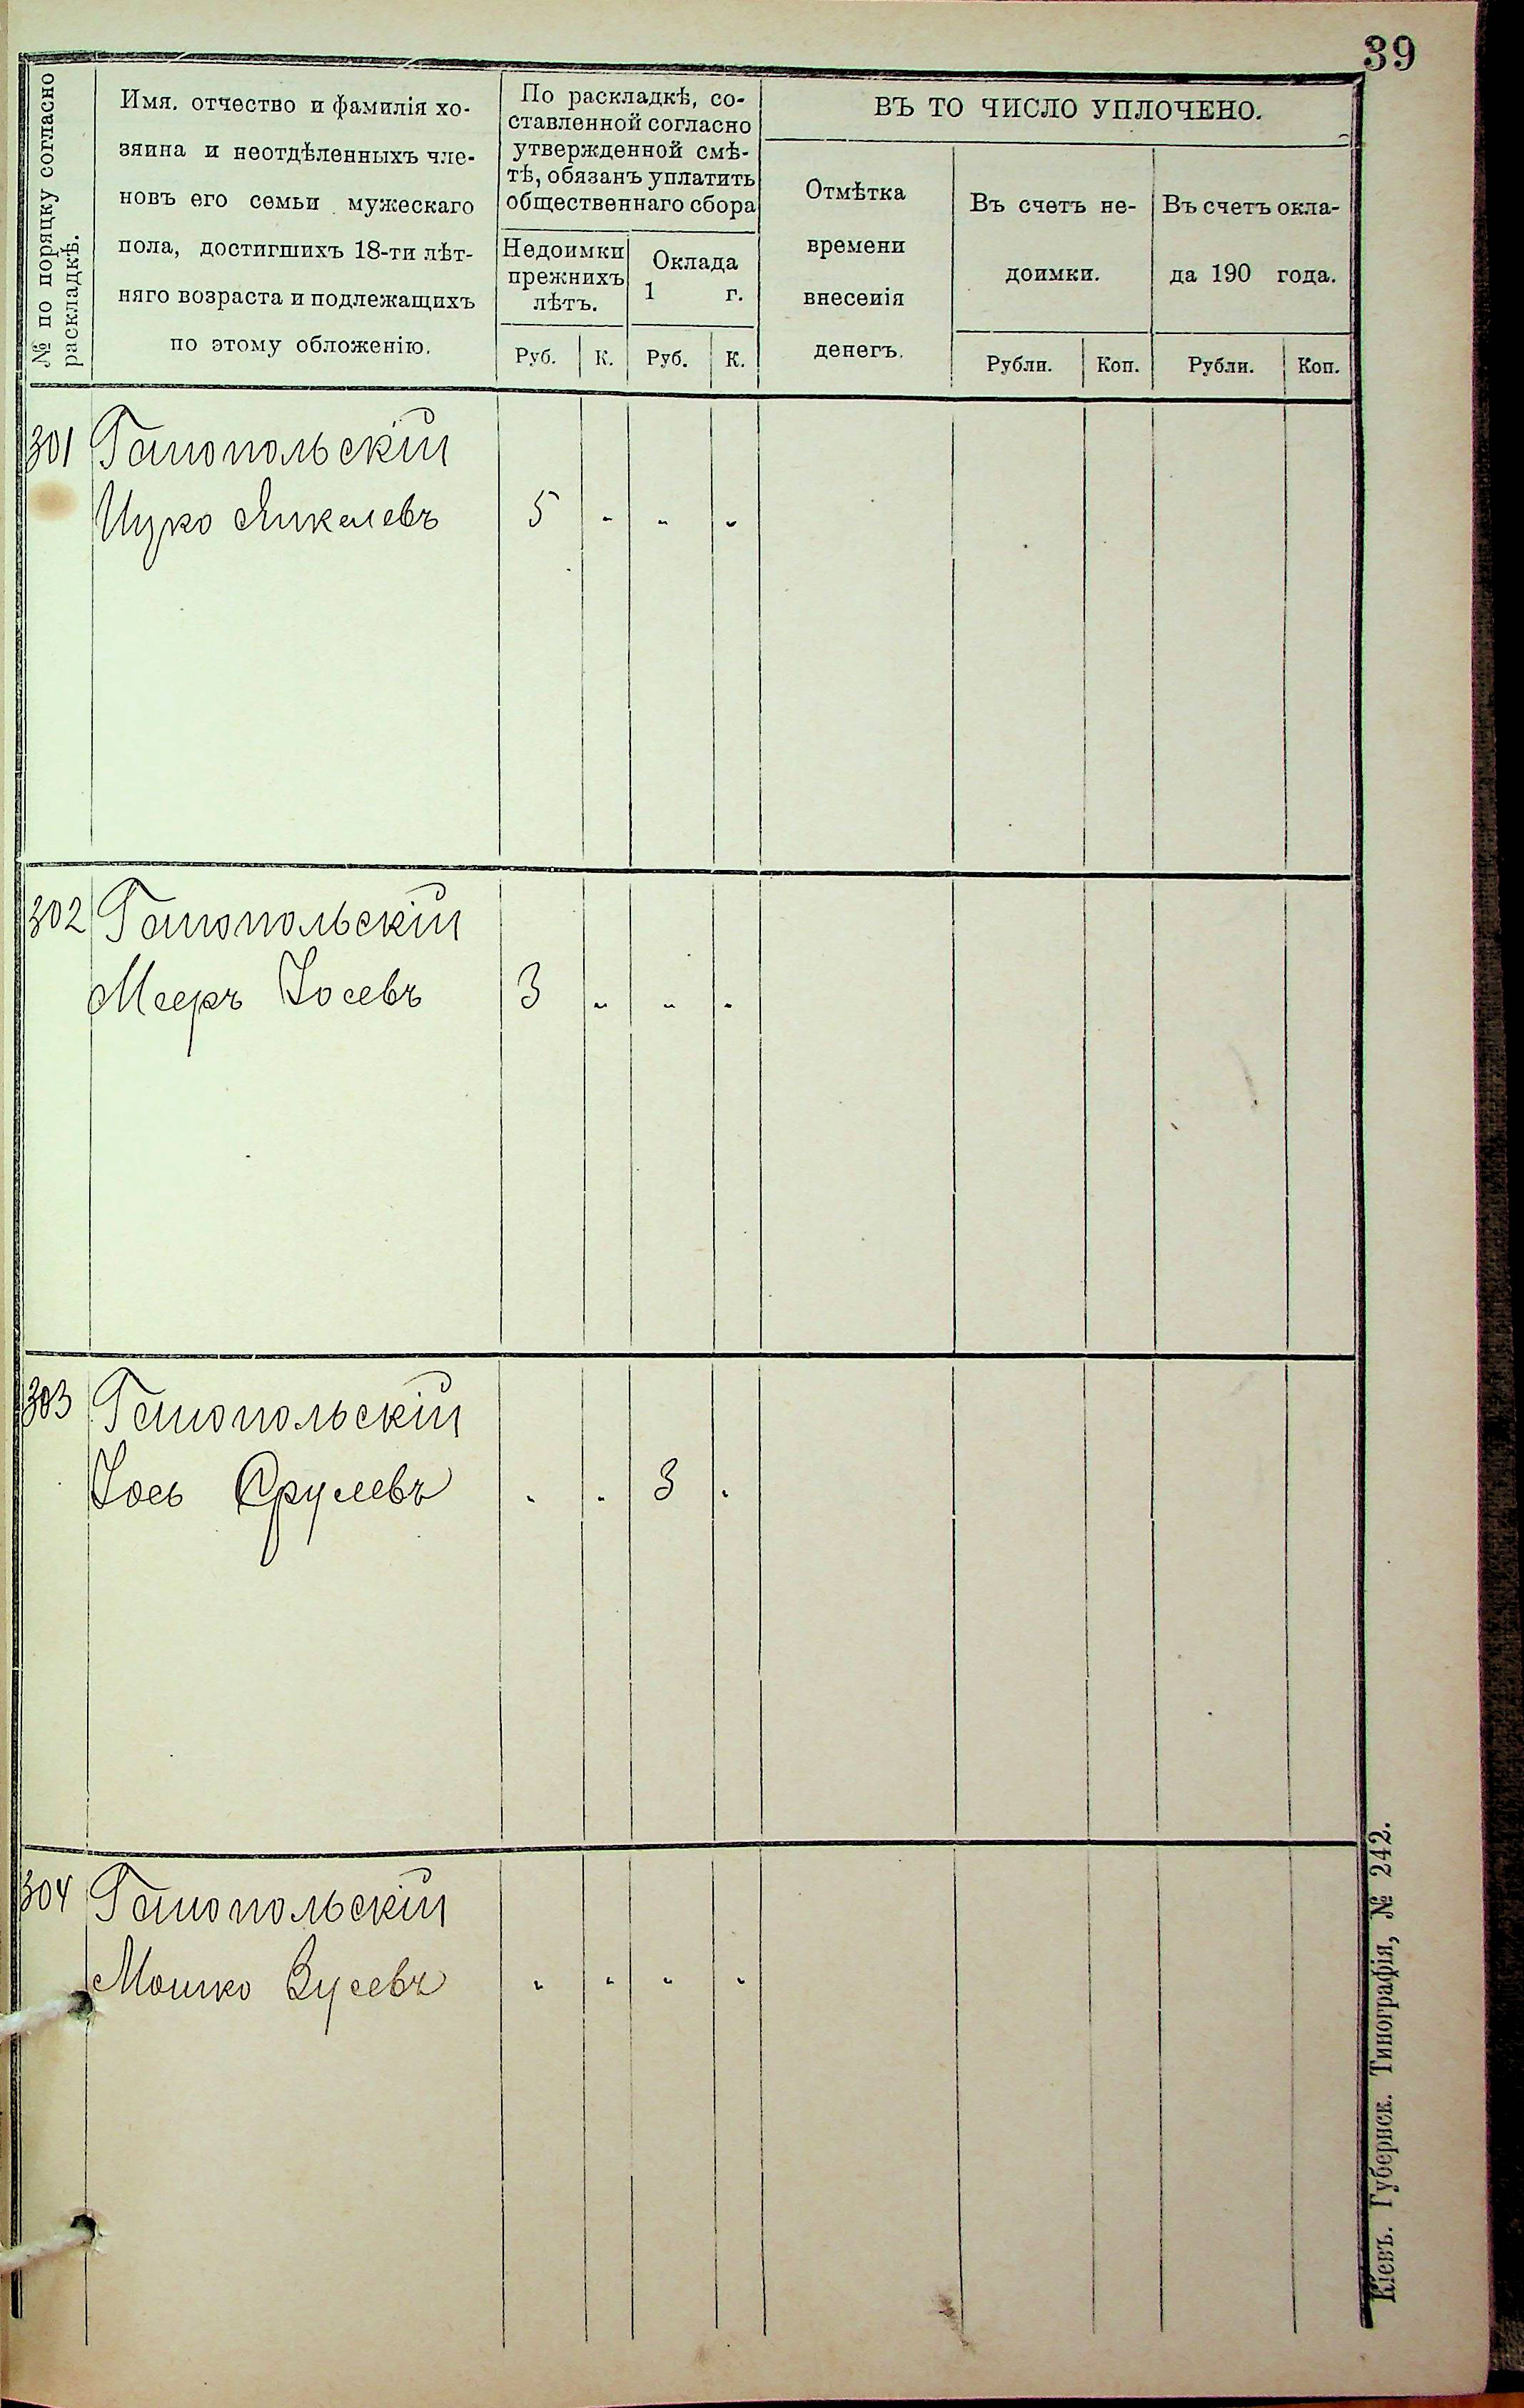 39
№ по порядку согласно
раскладкѣ.
Имя, отчество и фамилія хо-
зяина и неотдѣленныхъ чле-
новъ его семьи мужескаго
пола, достигшихъ 18-ти лѣт-
няго возраста и подлежащихъ
по этому обложенію.
По раскладкѣ, со-
ставленной согласно
утвержденной смѣ-
тѣ, обязанъ уплатить
общественнаго сбора
Недоимки
прежнихъ
лѣтъ.
Оклада
1 г.
Руб. К. Руб. К.
ВЪ ТО ЧИСЛО УПЛОЧЕНО.
Отмѣтка
времени
внесенія
денегъ.
Въ счетъ не-
доимки.
Въ счетъ окла-
да 190 года.
Рубли. Коп. Рубли. Коп.
301 Ганопольскій
Ицко Янкелевъ 5 " " "
302 Ганопольскій
Мееръ Іосевъ 3 " " "
303 Ганопольскій
Іось Срулевъ " " 3 "
304 Ганопольскій
Мошко Зусевъ " " " "
Кіевъ. Губернск. Типографія, № 242.